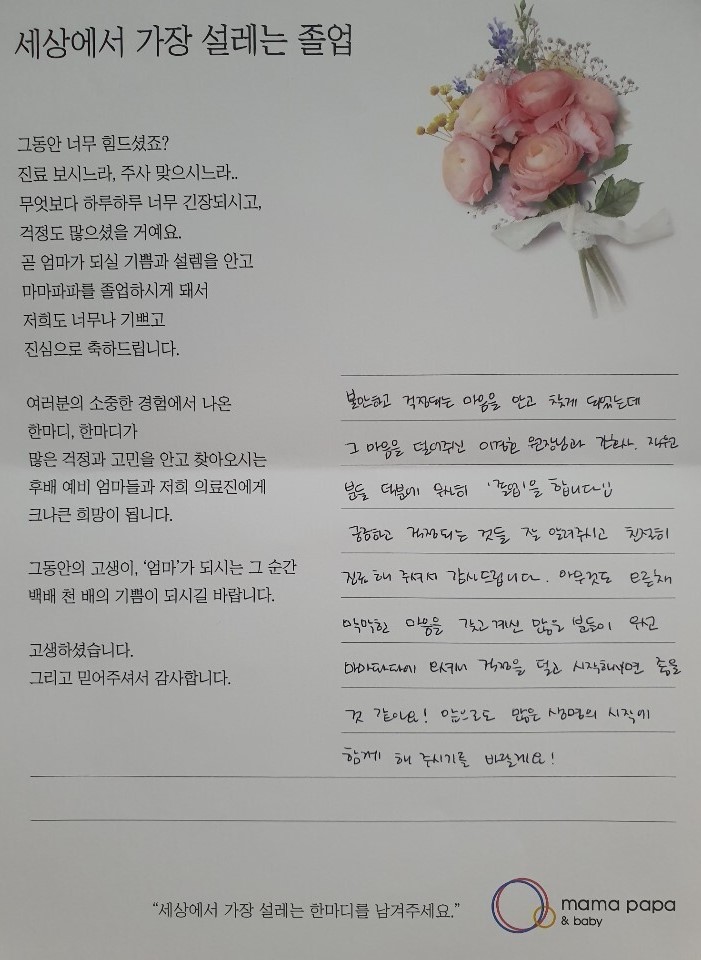 세상에서 가장 설레는 졸업
그동안 너무 힘드셨죠?
진료 보시느라, 주사 맞으시느라..
무엇보다 하루하루 너무 긴장되시고,
걱정도 많으셨을 거예요.
곧 엄마가 되실 기쁨과 설렘을 안고
마마파파를 졸업하시게 돼서
저희도 너무나 기쁘고
진심으로 축하드립니다.
여러분의 소중한 경험에서 나온
한마디, 한마디가
많은 걱정과 고민을 안고 찾아오시는
후배 예비 엄마들과 저희 의료진에게
크나큰 희망이 됩니다.
그동안의 고생이, ‘엄마’가 되시는 그 순간
백배 천 배의 기쁨이 되시길 바랍니다.
고생하셨습니다.
그리고 믿어주셔서 감사합니다.
불안하고 걱정되는 마음을 안고 찾게 되었는데
그 마음을 덜어주신 원장님과 간호사, 직원
분들 덕분에 무사히 '졸업'을 합니다
궁금하고 걱정되는 것들 잘 알려주시고 친절히
진료해 주셔서 감사드립니다. 아무것도 모른채
막막한 마음을 갖고계신 많은 분들이 우선
마마파파에 오셔서 걱정을 덜고 시작하시면 좋을
것 같아요! 앞으로도 많은 생명의 시작에
함께 해 주시기를 바랄게요!
“세상에서 가장 설레는 한마디를 남겨주세요.”
mama papa
& baby